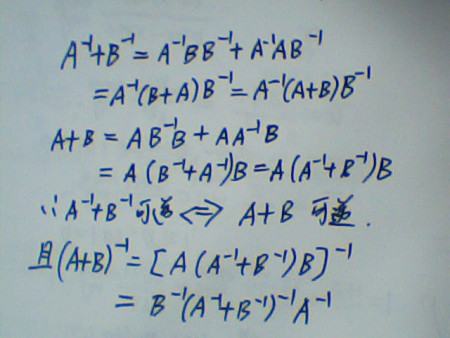 A⁻¹+B⁻¹ = A⁻¹BB⁻¹ + A⁻¹AB⁻¹
=A⁻¹(B+A)B⁻¹=A⁻¹(A+B)B⁻¹
A+B = AB⁻¹B + AA⁻¹B
= A(B⁻¹+A⁻¹)B=A(A⁻¹+B⁻¹)B
∴A⁻¹+B⁻¹可逆 <=> A+B 可逆.
且(A+B)⁻¹=[A(A⁻¹+B⁻¹)B]⁻¹
= B⁻¹(A⁻¹+B⁻¹)⁻¹A⁻¹